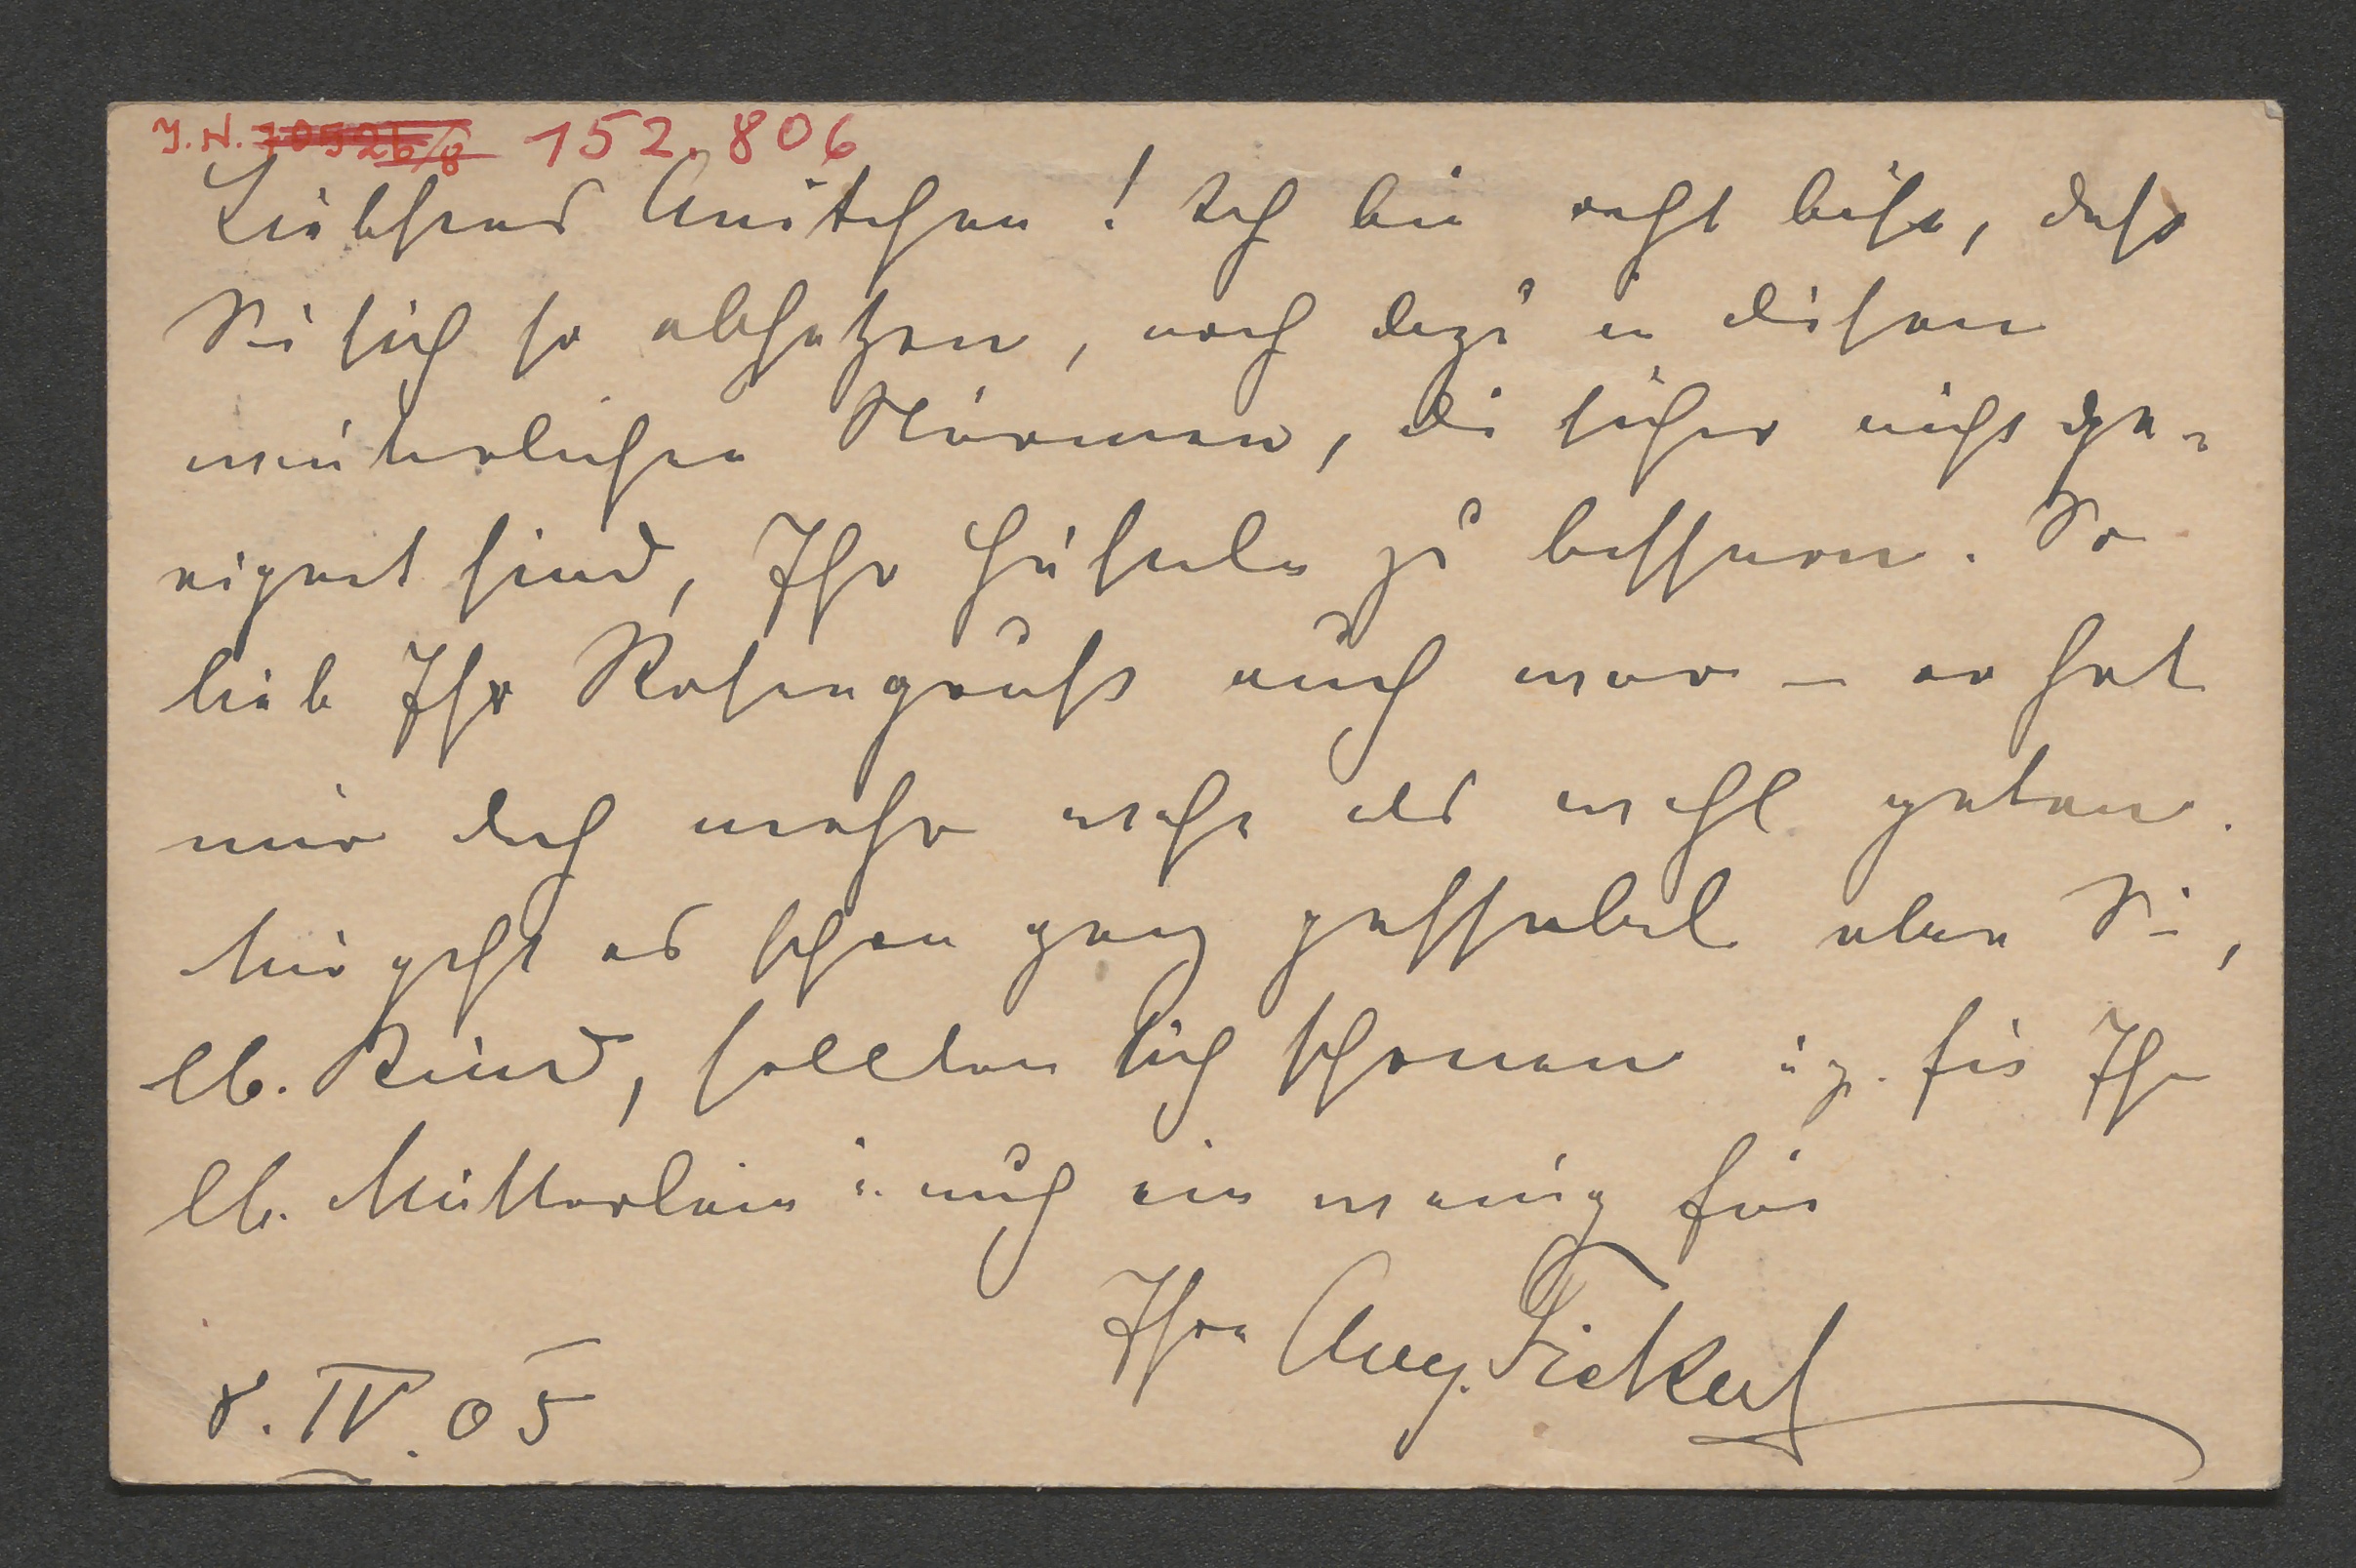 J. N. 70526/8 152.806
Liebstes Anitschen! Ich bin recht böse, dass
Sie sich so abhetzen, noch dazu in disen
winterlichen Stürmen, die sicher nicht ge-
eignet sind, Ihr Hüsteln zu bessern. So
lieb Ihr Rosengruß auch war – er hat
mir doch mehr weh als wohl getan.
Mir geht es schon ganz passabel aber Sie,
lb. Kind, sollten sich schonen für Ihr
lb. Mütterlein u. auch ein wenig für
Ihre Aug. Fickert
8. IV. 05